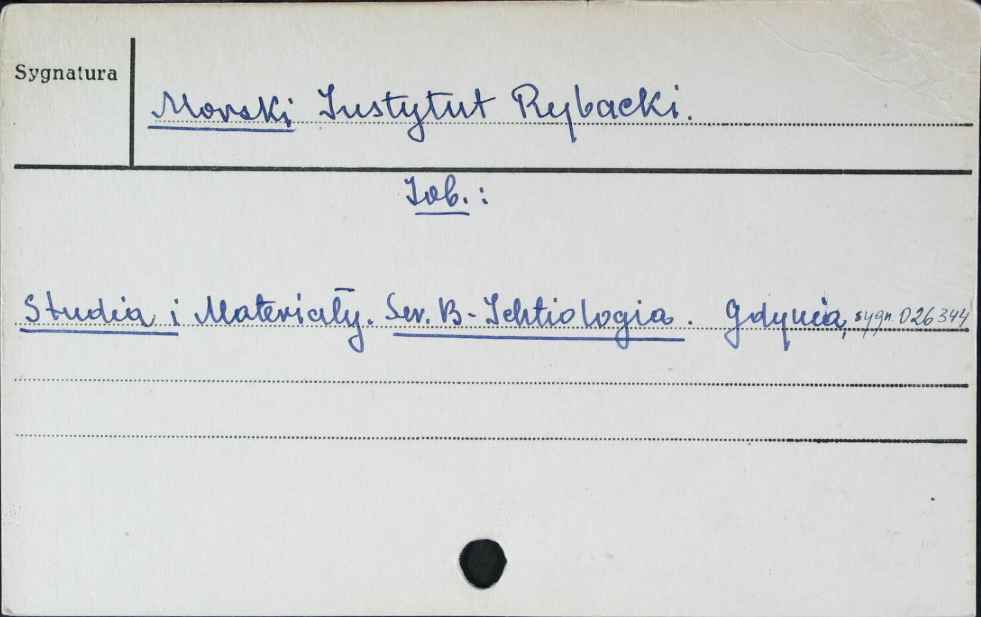 Sygnatura
Morski Instytut Rybacki.
Zob.:
Studia i Materiały. Ser. B - Ichtiologia. Gdynia, sygn. 026344